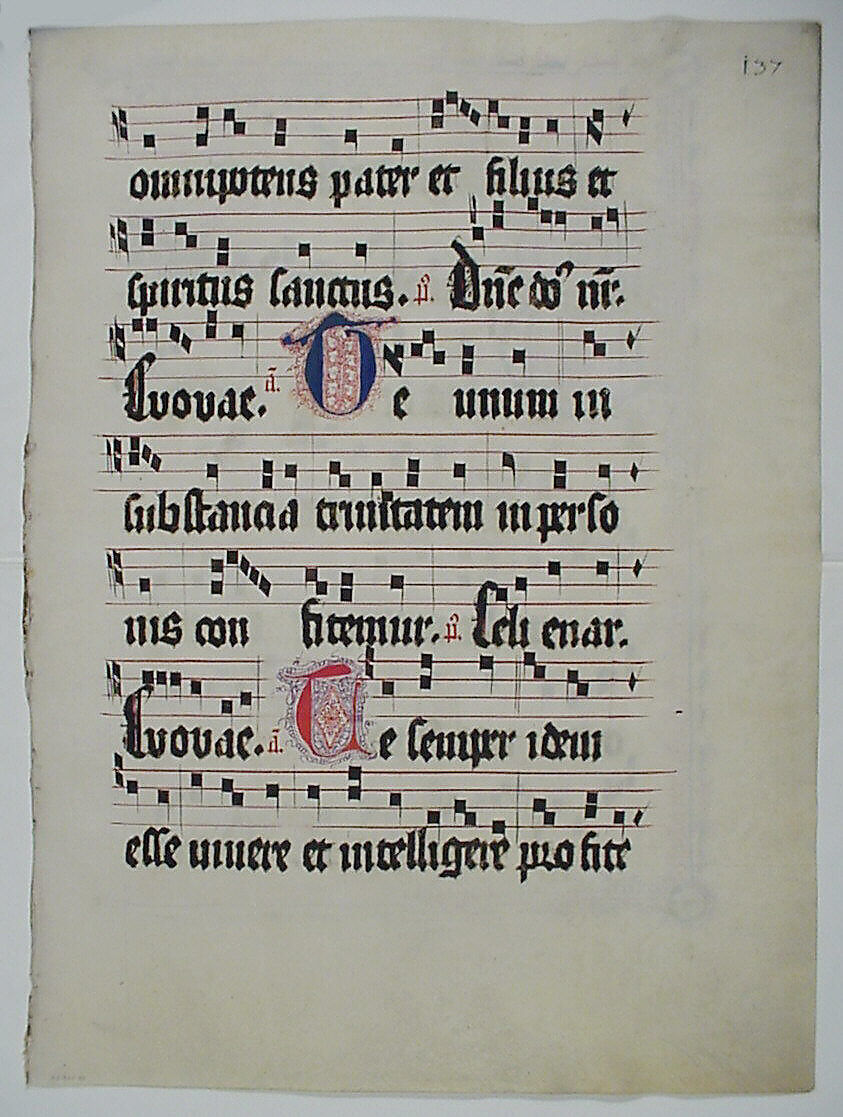 137
omnipotens pater et filius et
spiritus sanctus. p̃. Dñe do᷒ nr̃.
Euouae. ã. Te unum in
substancia trinitatem in perso
nis con fitemur. p̃. Celi enar.
Euouae. ã. Te semper idem
esse uiuere et intelligere profite